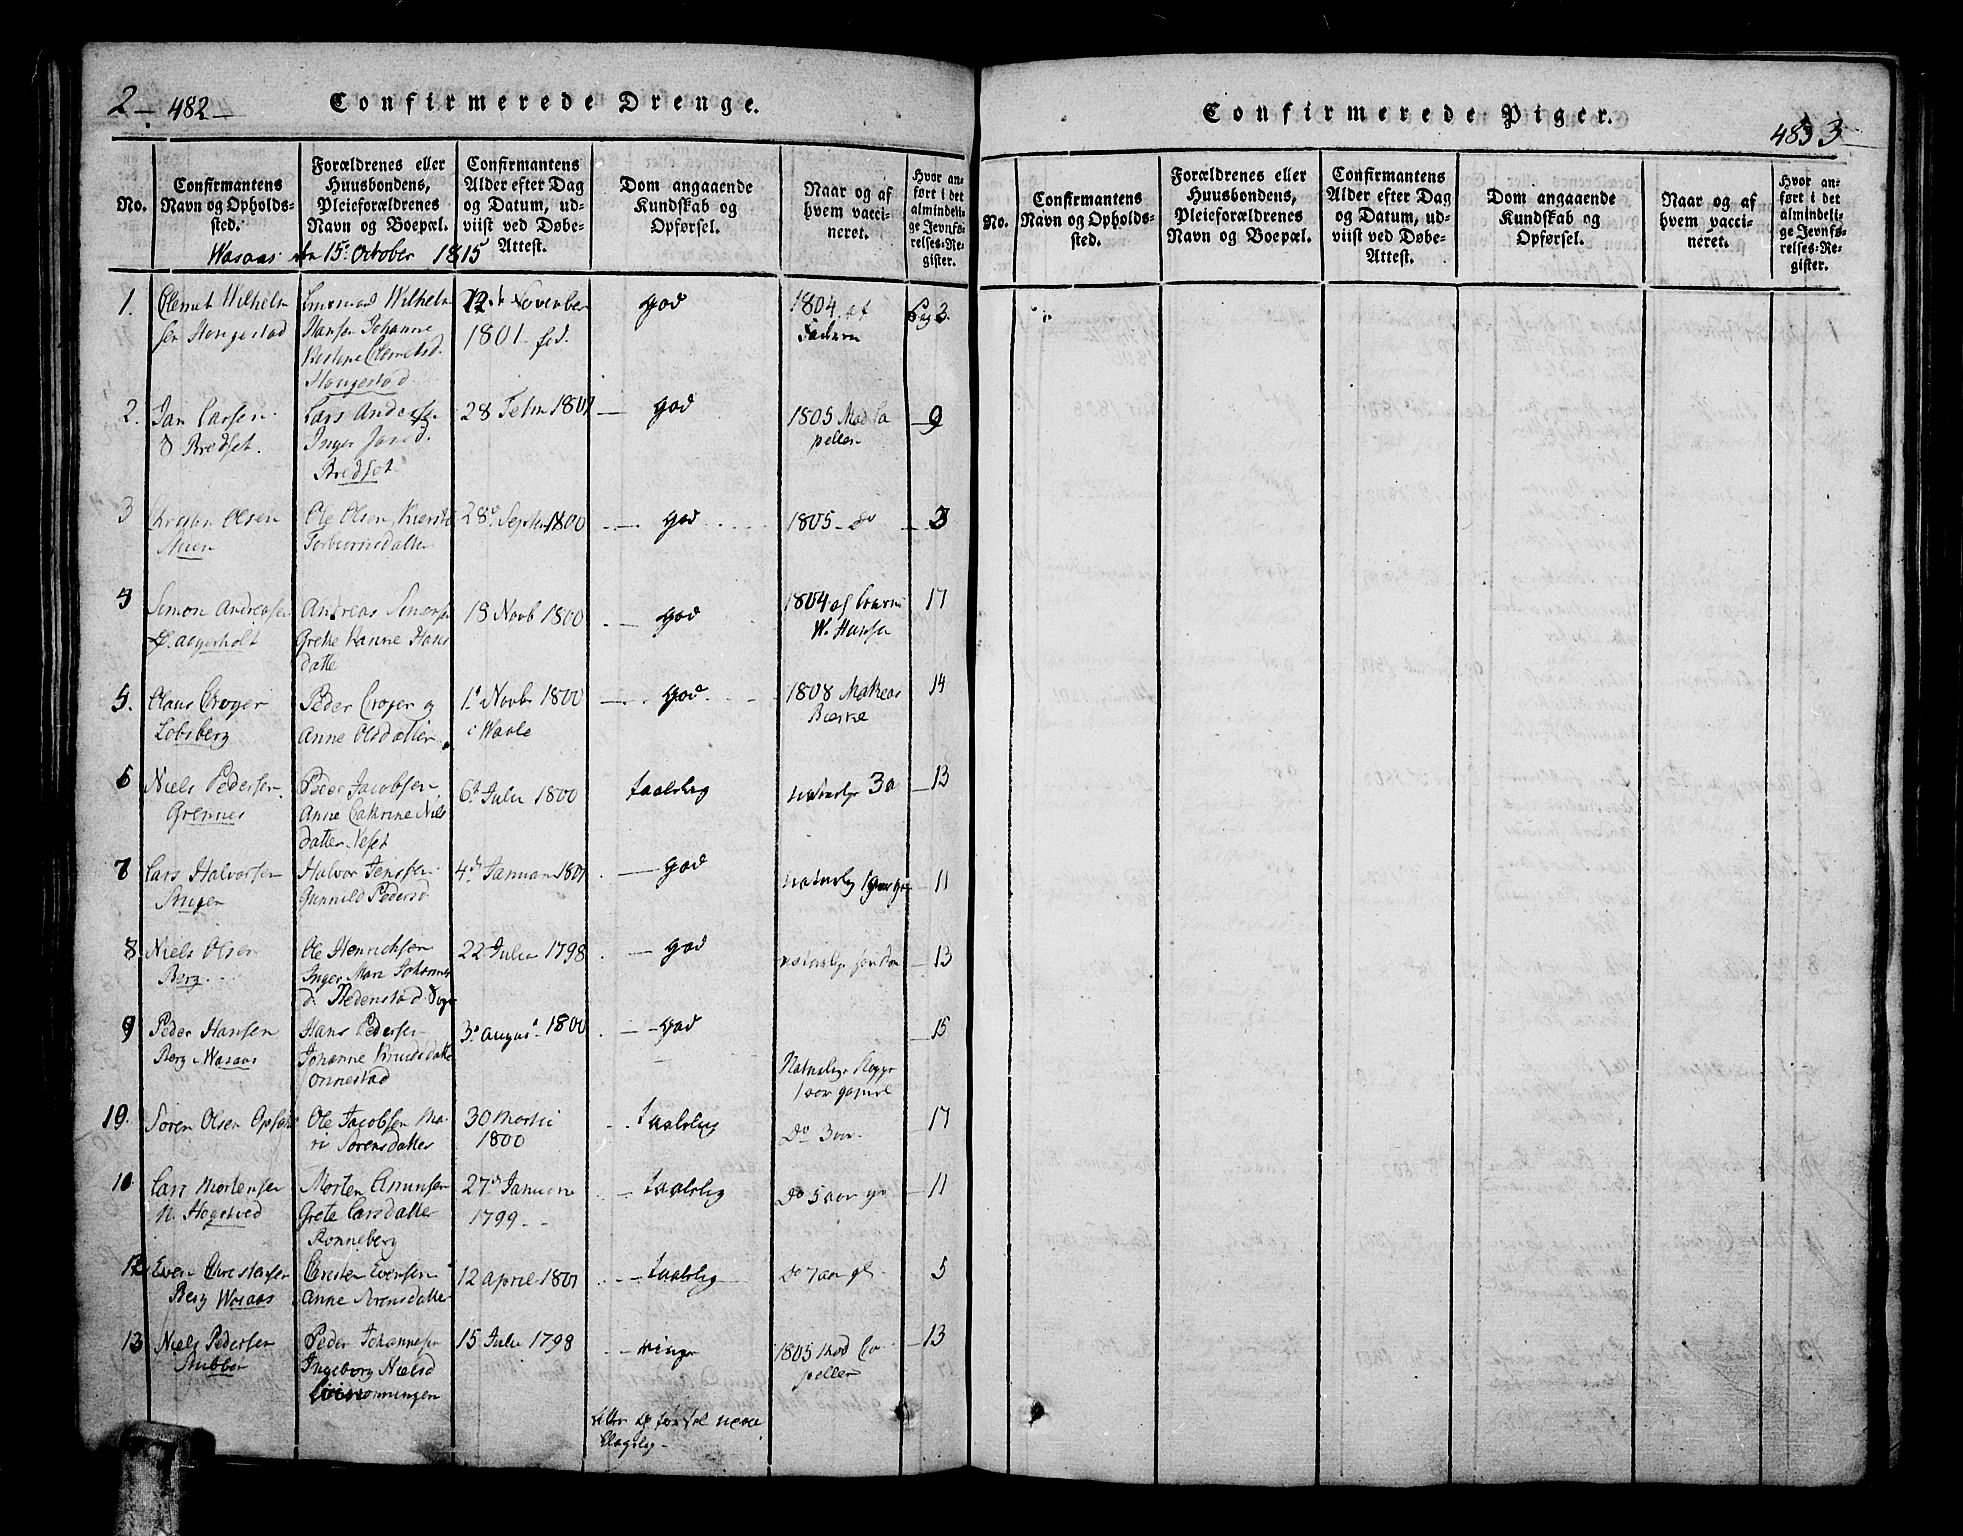 2 — 482 —
Confirmerede Drenge.
No.
Confirmantens
Navn og Opholds-
sted.
Forældrenes eller
Huusbondens,
Pleieforældrenes
Navn og Boepæl.
Confirmantens
Alder efter Dag
og Datum, ud-
viist ved Døbe-
Attest.
Dom angaaende
Kundskab og
Opførsel.
Naar og af
hvem vacci-
neret.
Hvor an-
ført i det
almindeli-
ge Jevnfø-
relses-Re-
gister.
Wasaas den 15de October 1815
1.
Clemet Wilhelm
sen Hongestad
Wilhelm
Hansen Johanne
Clemetsd.
Hongestad
12 November
1801 fød.
god
1804 af
Faderen
Pag 3.
2.
Jan Larsen
Bredset.
Lars Anders
Inger Jansd.
Bredset
28 Febr 1801
god
1805 Mad Ca
pellen
9
3
Christen Olsen
Muen
Ole Olsen, Kierste
Torbiørnsdatter
28de Septbr 1800
god
1805 do
3
4
Simon Andreasen
Aagerholt
Andreas Simonsen
Grethe Hans
datte
18 Novb 1800
god
1804 af
W. Hansen
17
5.
Claus Crøger
Lobsberg
Peder Crøger og
Anne Olsdatter
1t Novbr 1800
i Waale
god
1808 Matheas
Bierke
14
6
Niels Pedersen
Grennes
Peder Jacobsen
Anne Cathrine Niels
datter Veset
6t Julii 1800
taalelig
naturlige 3 a
13
7
Lars Halvorsen
Halvor Jenssen
Gunnild Pedersd
4de Januari 1801
god
naturlig 1 aar ga
11
8
Niels Olsen
Berg
Ole Henrichsen
Inger Mari Johannes
d. Hedenstad
22 Julii 1798
god
naturlige
13
9
Peder Hansen
Berg i Wasaas
Hans Pedersen
Johanne Knudsdatte
Onnestad
3de August 1800
god
Naturlige Kopper
1 aar gamel
15
10.
Søren Olsen
Ole Jacobsen Ma-
ri Sørensdatter
30 Martii
1800
taalelig
Do 3 aar
17
11
Lars Mortensen
N. Hogstved
Morten Amunsen
Grete Larsdatter
Ronneberg
27de Januari
1799
taalelig
Do 5 aar g
11
12
Even Christensen
Berg Wasaas
Christen Evensen
Anne Arensdatter
12 April 1801
taalelig
Do 7 aar gl
5
13
Niels Pedersen
Stubben
Peder Johannesen
Ingeborg Nielsd
15 Julii 1798
ringe
1805 Mad Ca
pellen
13
Confirmerede Piger.
483 3
No.
Confirmantens
Navn og Opholds-
sted.
Forældrenes eller
Huusbondens,
Pleieforældrenes
Navn og Boepæl.
Confirmantens
Alder efter Dag
og Datum, ud-
viist ved Døbe-
Attest.
Dom angaaende
Kundskab og
Opførsel.
Naar og af
hvem vacci-
neret.
Hvor an-
ført i det
almindeli-
ge Jevnfø-
relses-Re-
gister.